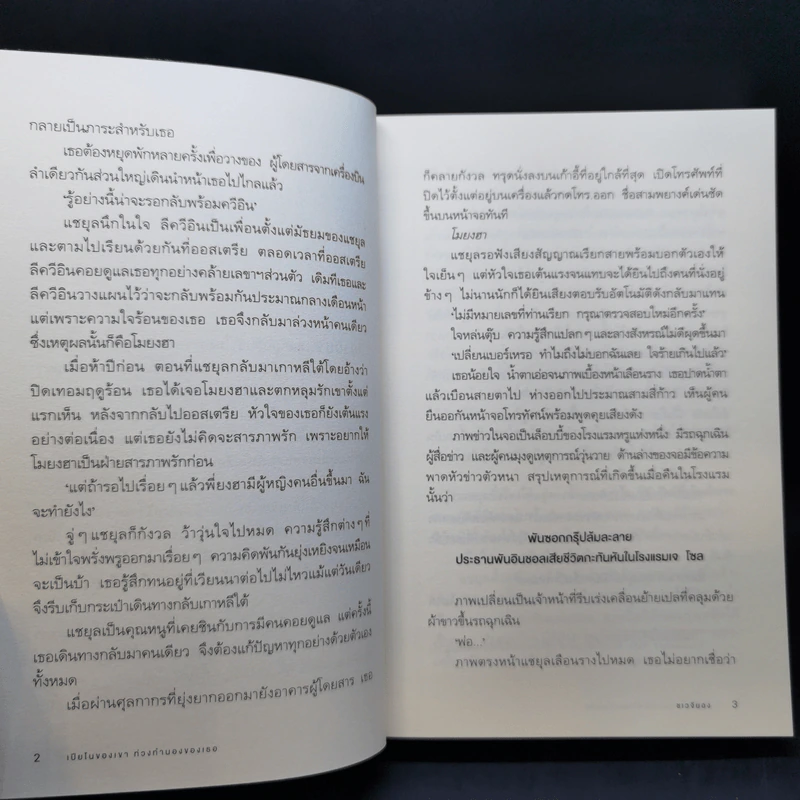 กลายเป็นภาระสำหรับเธอ
เธอต้องหยุดพักหลายครั้งเพื่อวางของ ผู้โดยสารจากเครื่องบิน
ลำเดียวกันส่วนใหญ่เดินนำหน้าเธอไปไกลแล้ว
'รู้อย่างนี้น่าจะรอกลับพร้อมควีอิน'
แชยุลนึกในใจ ลีควีอินเป็นเพื่อนตั้งแต่มัธยมของแชยุล
และตามไปเรียนด้วยกันที่ออสเตรีย ตลอดเวลาที่ออสเตรีย
ลีควีอินคอยดูแลเธอทุกอย่างคล้ายเลขาฯส่วนตัว เดิมทีเธอและ
ลีควีอินวางแผนไว้ว่าจะกลับพร้อมกันประมาณกลางเดือนหน้า
แต่เพราะความใจร้อนของเธอ เธอจึงกลับมาล่วงหน้าคนเดียว
ซึ่งเหตุผลนั้นก็คือโมยงฮา
เมื่อห้าปีก่อน ตอนที่แชยุลกลับมาเกาหลีใต้โดยอ้างว่า
ปิดเทอมฤดูร้อน เธอได้เจอโมยงฮาและตกหลุมรักเขาตั้งแต่
แรกเห็น หลังจากกลับไปออสเตรีย หัวใจของเธอก็ยังเต้นแรง
อย่างต่อเนื่อง แต่เธอยังไม่คิดจะสารภาพรัก เพราะอยากให้
โมยงฮาเป็นฝ่ายสารภาพรักก่อน
'แต่ถ้ารอไปเรื่อยๆ แล้วพี่ยงฮามีผู้หญิงคนอื่นขึ้นมา ฉัน
จะทำยังไง'
จู่ๆ แชยุลก็กังวล ว้าวุ่นใจไปหมด ความรู้สึกต่างๆ ที่
ไม่เข้าใจพรั่งพรูออกมาเรื่อยๆ ความคิดพันกันยุ่งเหยิงจนเหมือน
จะเป็นบ้า เธอรู้สึกทนอยู่ที่เวียนนาต่อไปไม่ไหวแม้แต่วันเดียว
จึงรีบเก็บกระเป๋าเดินทางกลับเกาหลีใต้
แชยุลเป็นคุณหนูที่เคยชินกับการมีคนคอยดูแล แต่ครั้งนี้
เธอเดินทางกลับมาคนเดียว จึงต้องแก้ปัญหาทุกอย่างด้วยตัวเอง
ทั้งหมด
เมื่อผ่านศุลกากรที่ยุ่งยากออกมายังอาคารผู้โดยสาร เธอ
2 เปียโนของเขา ท่วงทำนองของเธอ
ก็คลายกังวล ทรุดนั่งลงบนเก้าอี้ที่อยู่ใกล้ที่สุด เปิดโทรศัพท์ที่
ปิดไว้ตั้งแต่อยู่บนเครื่องแล้วกดโทร.ออก ชื่อสามพยางค์เด่นชัด
ขึ้นบนหน้าจอทันที
โมยงฮา
แชยุลรอฟังเสียงสัญญาณเรียกสายพร้อมบอกตัวเองให้
ใจเย็นๆ แต่หัวใจเธอเต้นแรงจนแทบจะได้ยินไปถึงคนที่นั่งอยู่
ข้างๆ ไม่นานนักก็ได้ยินเสียงตอบรับอัตโนมัติดังกลับมาแทน
'ไม่มีหมายเลขที่ท่านเรียก กรุณาตรวจสอบใหม่อีกครั้ง'
ใจหล่นตุ้บ ความรู้สึกแปลกๆ และลางสังหรณ์ไม่ดีผุดขึ้นมา
'เปลี่ยนเบอร์เหรอ ทำไมถึงไม่บอกฉันเลย ใจร้ายเกินไปแล้ว'
เธอน้อยใจ น้ำตาเอ่อจนภาพเบื้องหน้าเลือนราง เธอปาดน้ำตา
แล้วเบือนสายตาไป ห่างออกไปประมาณสามสี่ก้าว เห็นผู้คน
ยืนออกันหน้าจอโทรทัศน์พร้อมพูดคุยเสียงดัง
ภาพข่าวในจอเป็นล็อบบี้ของโรงแรมหรูแห่งหนึ่ง มีรถฉุกเฉิน
ผู้สื่อข่าว และผู้คนมุงดูเหตุการณ์วุ่นวาย ด้านล่างของจอมีข้อความ
พาดหัวข่าวตัวหนา สรุปเหตุการณ์ที่เกิดขึ้นเมื่อคืนในโรงแรม
นั้นว่า
พันซอกกรุ๊ปล้มละลาย
ประธานพันอินซอลเสียชีวิตกะทันหันในโรงแรมเจ โซล
ภาพเปลี่ยนเป็นเจ้าหน้าที่รีบเร่งเคลื่อนย้ายเปลที่คลุมด้วย
ผ้าขาวขึ้นรถฉุกเฉิน
'พ่อ...'
ภาพตรงหน้าแชยุลเลือนรางไปหมด เธอไม่อยากเชื่อว่า
แชจียอง 3